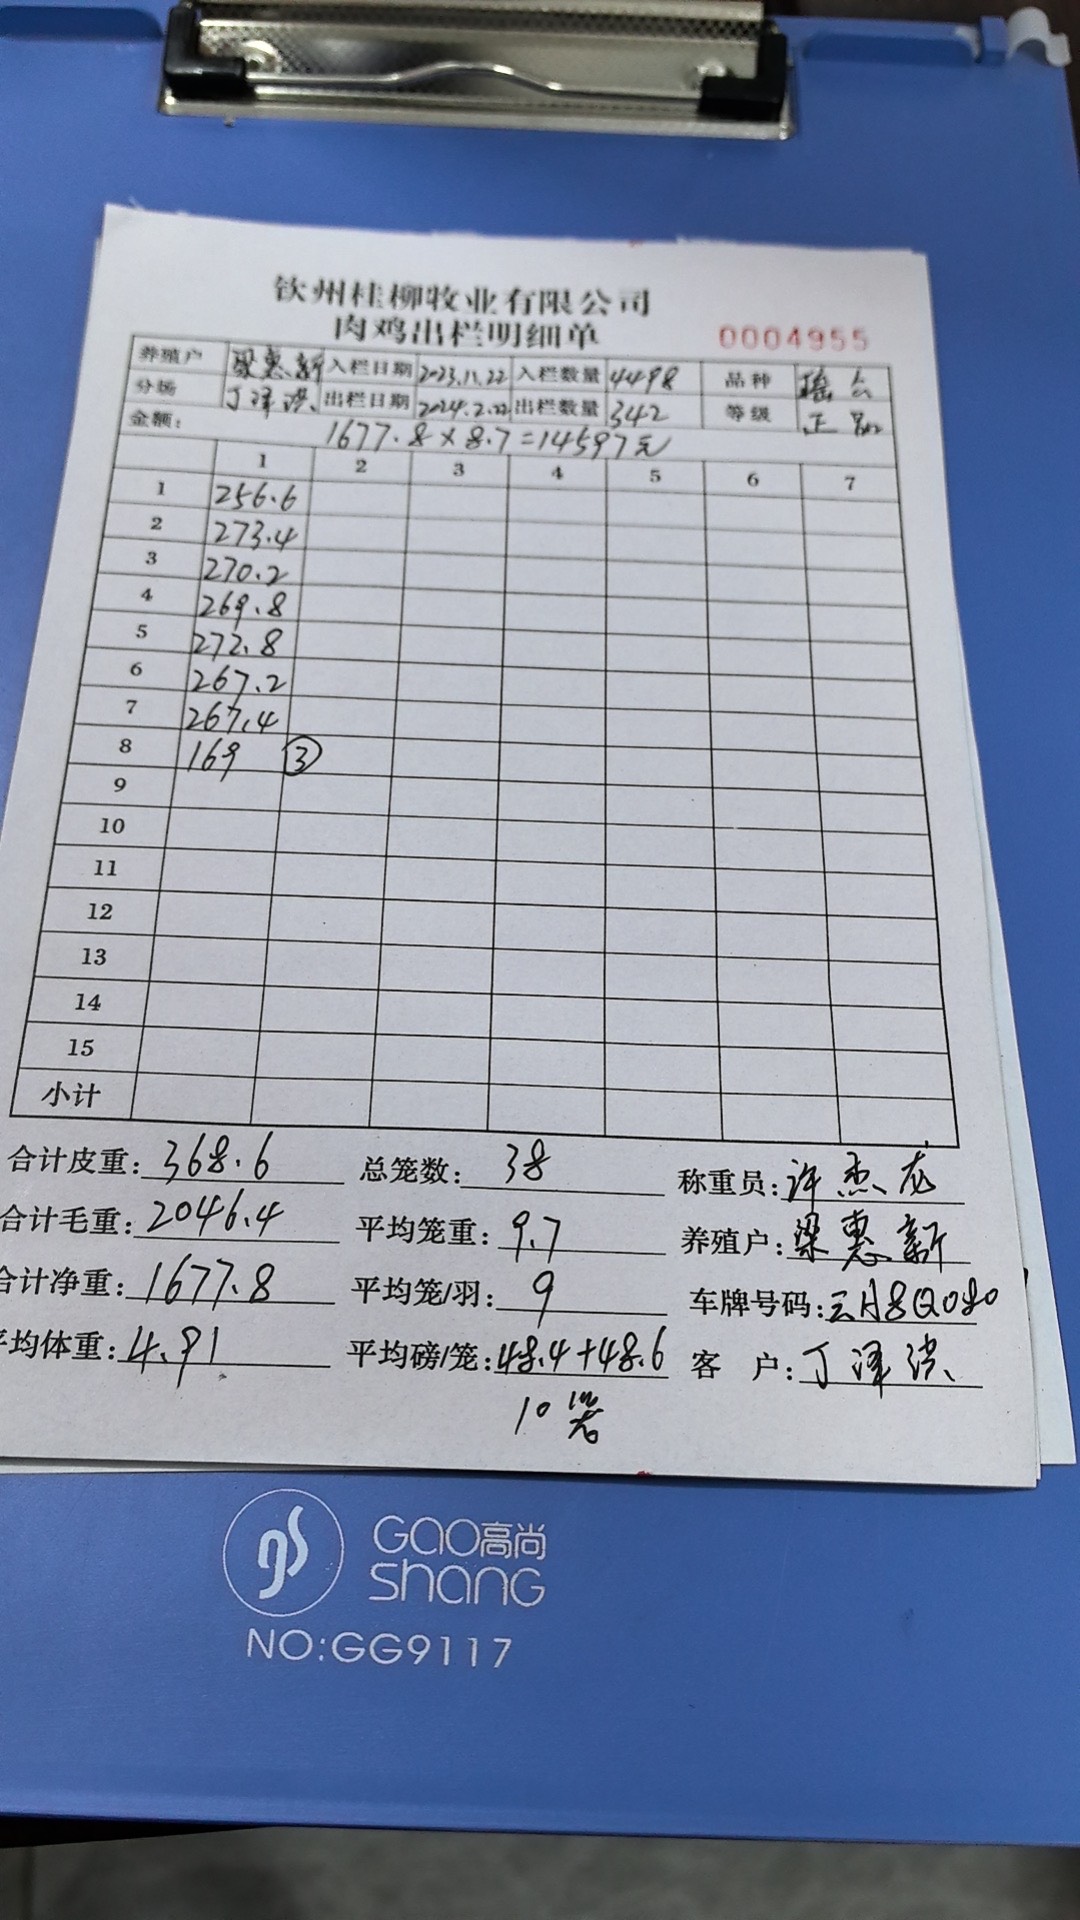 钦州桂柳牧业有限公司
肉鸡出栏明细单 0004955
养殖户 梁惠新 入栏日期 2023.11.22 入栏数量 4498 品种 瑶
分场 丁泽洪 出栏日期 2024.2.22 出栏数量 342 等级 正品
金额: 1677.8×8.7=14597元
1 2 3 4 5 6 7
1 256.6
2 273.4
3 270.2
4 269.8
5 272.8
6 267.2
7 267.4
8 169 ③
9
10
11
12
13
14
15
小计
合计皮重: 368.6 总笼数: 38 称重员: 许杰龙
合计毛重: 2046.4 平均笼重: 9.7 养殖户: 梁惠新
合计净重: 1677.8 平均笼/羽: 9 车牌号码: 云A8Q080
平均体重: 4.91 平均磅/笼: 48.4+48.6 客 户: 丁泽洪
10
gs GAO高尚
SHANG
NO:GG9117